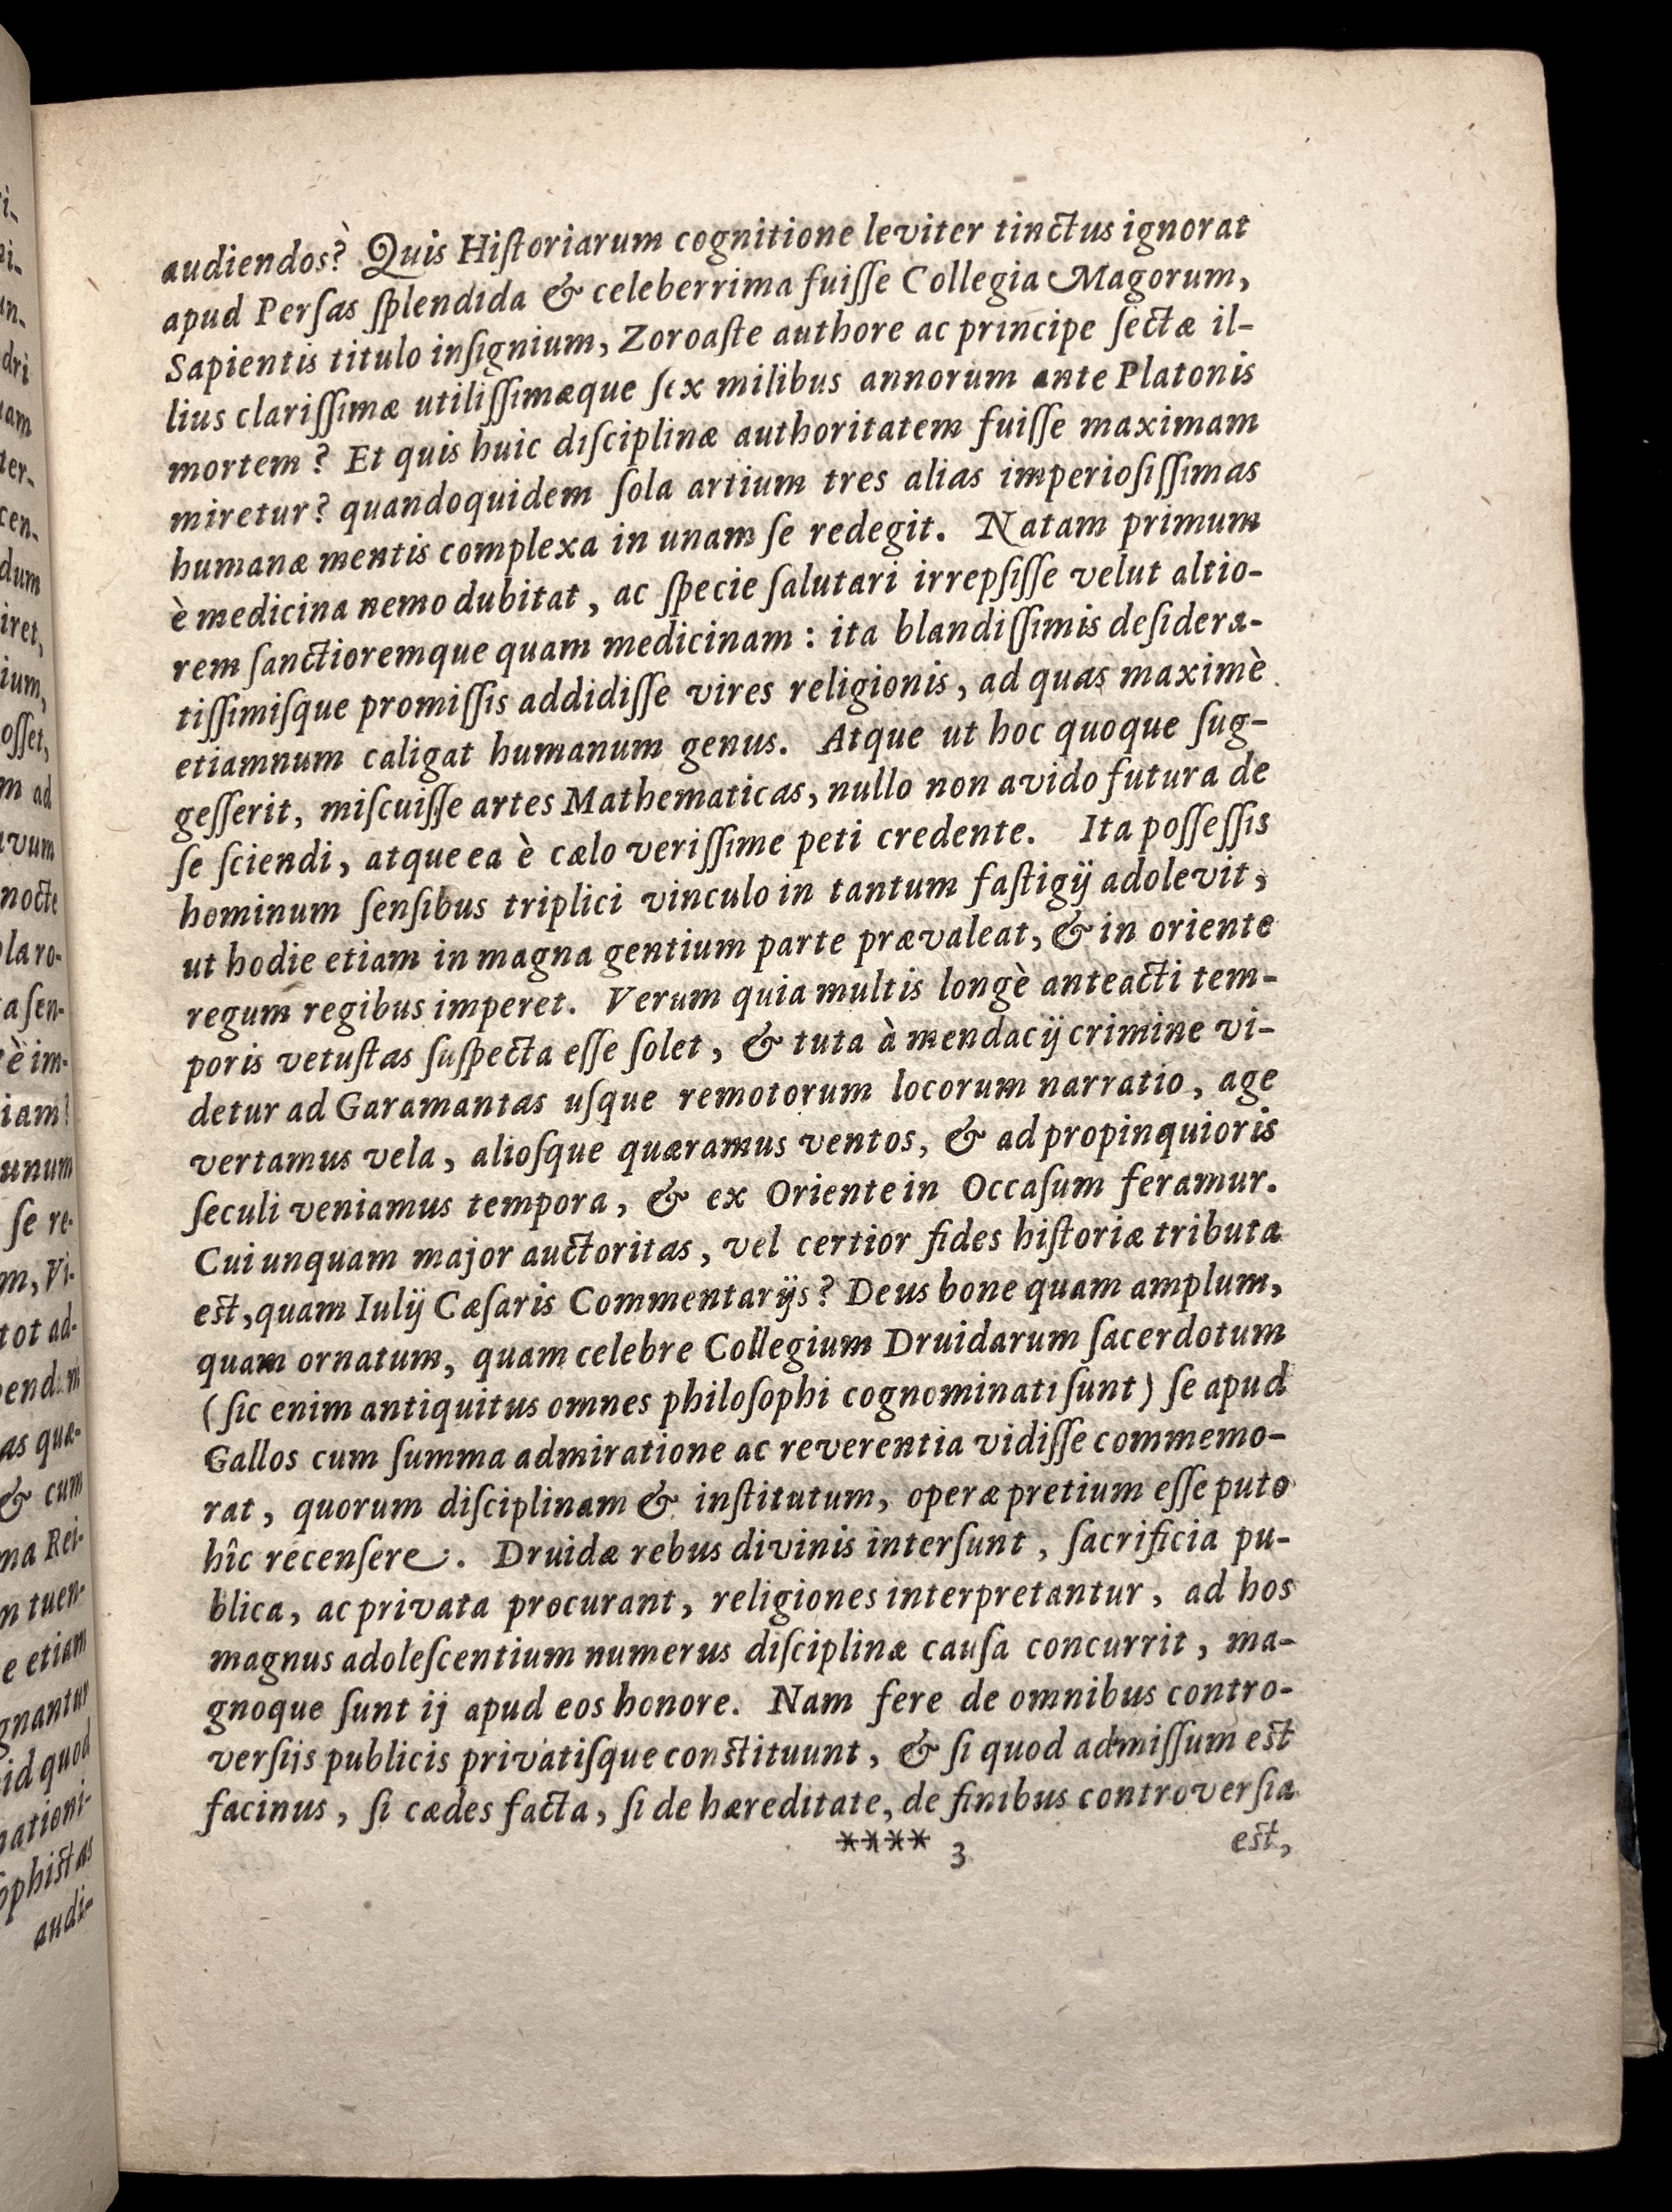 audiendos? Quis Hiſtoriarum cognitione leviter tinctus ignorat
apud Perſas ſplendida & celeberrima fuiſſe Collegia Magorum,
Sapientis titulo inſignium, Zoroaſte authore ac principe ſectæ il-
lius clariſſimæ utiliſſimæque ſex milibus annorum ante Platonis
mortem? Et quis huic diſciplinæ authoritatem fuiſſe maximam
miretur? quandoquidem ſola artium tres alias imperioſiſſimas
humanæ mentis complexa in unam ſe redegit. Natam primum
è medicina nemo dubitat, ac ſpecie ſalutari irrepſiſſe velut altio-
rem ſanctioremque quam medicinam: ita blandiſſimis deſidera-
tiſſimiſque promiſſis addidiſſe vires religionis, ad quas maximè
etiamnum caligat humanum genus. Atque ut hoc quoque ſug-
geſſerit, miſcuiſſe artes Mathematicas, nullo non avido futura de
ſe ſciendi, atque ea è cælo veriſſime peti credente. Ita poſſeſſis
hominum ſenſibus triplici vinculo in tantum faſtigij adolevit,
ut hodie etiam in magna gentium parte prævaleat, & in oriente
regum regibus imperet. Verum quia multis longè anteacti tem-
poris vetuſtas ſuſpecta eſſe ſolet, & tuta à mendacij crimine vi-
detur ad Garamantas uſque remotorum locorum narratio, age
vertamus vela, alioſque quæramus ventos, & ad propinquioris
ſeculi veniamus tempora, & ex Oriente in Occaſum feramur.
Cui unquam major auctoritas, vel certior fides hiſtoriæ tributa
eſt, quam Iulij Cæſaris Commentarijs? Deus bone quam amplum,
quam ornatum, quam celebre Collegium Druidarum ſacerdotum
(ſic enim antiquitus omnes philoſophi cognominati ſunt) ſe apud
Gallos cum ſumma admiratione ac reverentia vidiſſe commemo-
rat, quorum diſciplinam & inſtitutum, operæ pretium eſſe puto
hîc recenſere. Druidæ rebus divinis interſunt, ſacrificia pu-
blica, ac privata procurant, religiones interpretantur, ad hos
magnus adoleſcentium numerus diſciplinæ cauſa concurrit, ma-
gnoque ſunt ij apud eos honore. Nam fere de omnibus contro-
verſijs publicis privatiſque conſtituunt, & ſi quod admiſſum eſt
facinus, ſi cædes facta, ſi de hæreditate, de finibus controverſia
**** 3 eſt,